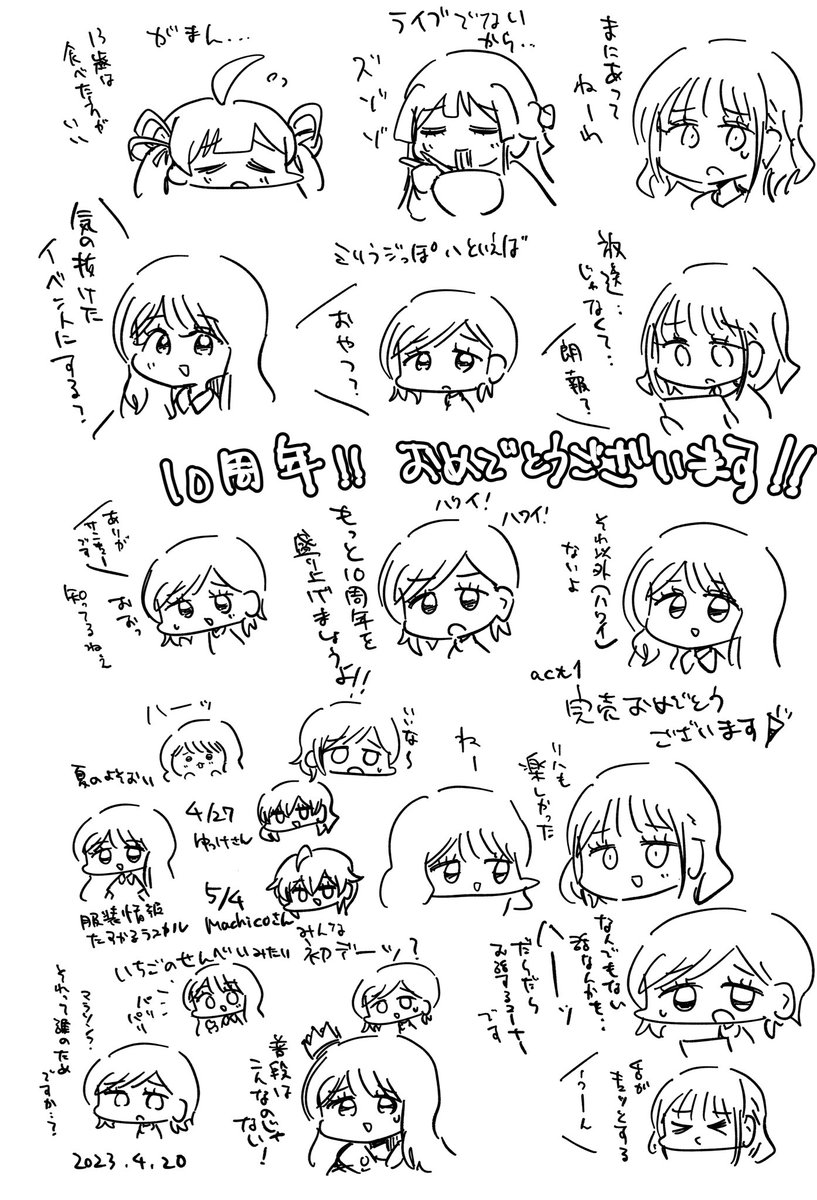 まにあって
ねーわ
ライブでない
から…
ズゾゾ
がまん…
13歳は
食べたれが
いい
放送…
じゃなくて…
朗報?
おやつ?
気の抜けた
イベントにする?
10周年!! おめでとうございます!!
それ以外(ハワイ)
ないよ
ハワイ!
ハワイ!
もっと10周年を
盛り上げましょうよ!!
おおっ
知ってるねぇ
act1
完売おめでとう
ございます
ハーッ
いいな〜
夏のよそおい
4/27
ゆっけさん
5/4
Machicoさん
みんな
初デーッ?
服装情報
たすかるラスカル
ねー
リハも
楽しかった
いちごのせんべいみたい
パリ
パリ
へーッ
だらだら
お話するコーナー
です
なんでもない
話なんかも…
マラソン?
それって誰のため
ですか…?
普段は
こんなのじゃ
ない!
キュッとする
うーん
2023.4.20